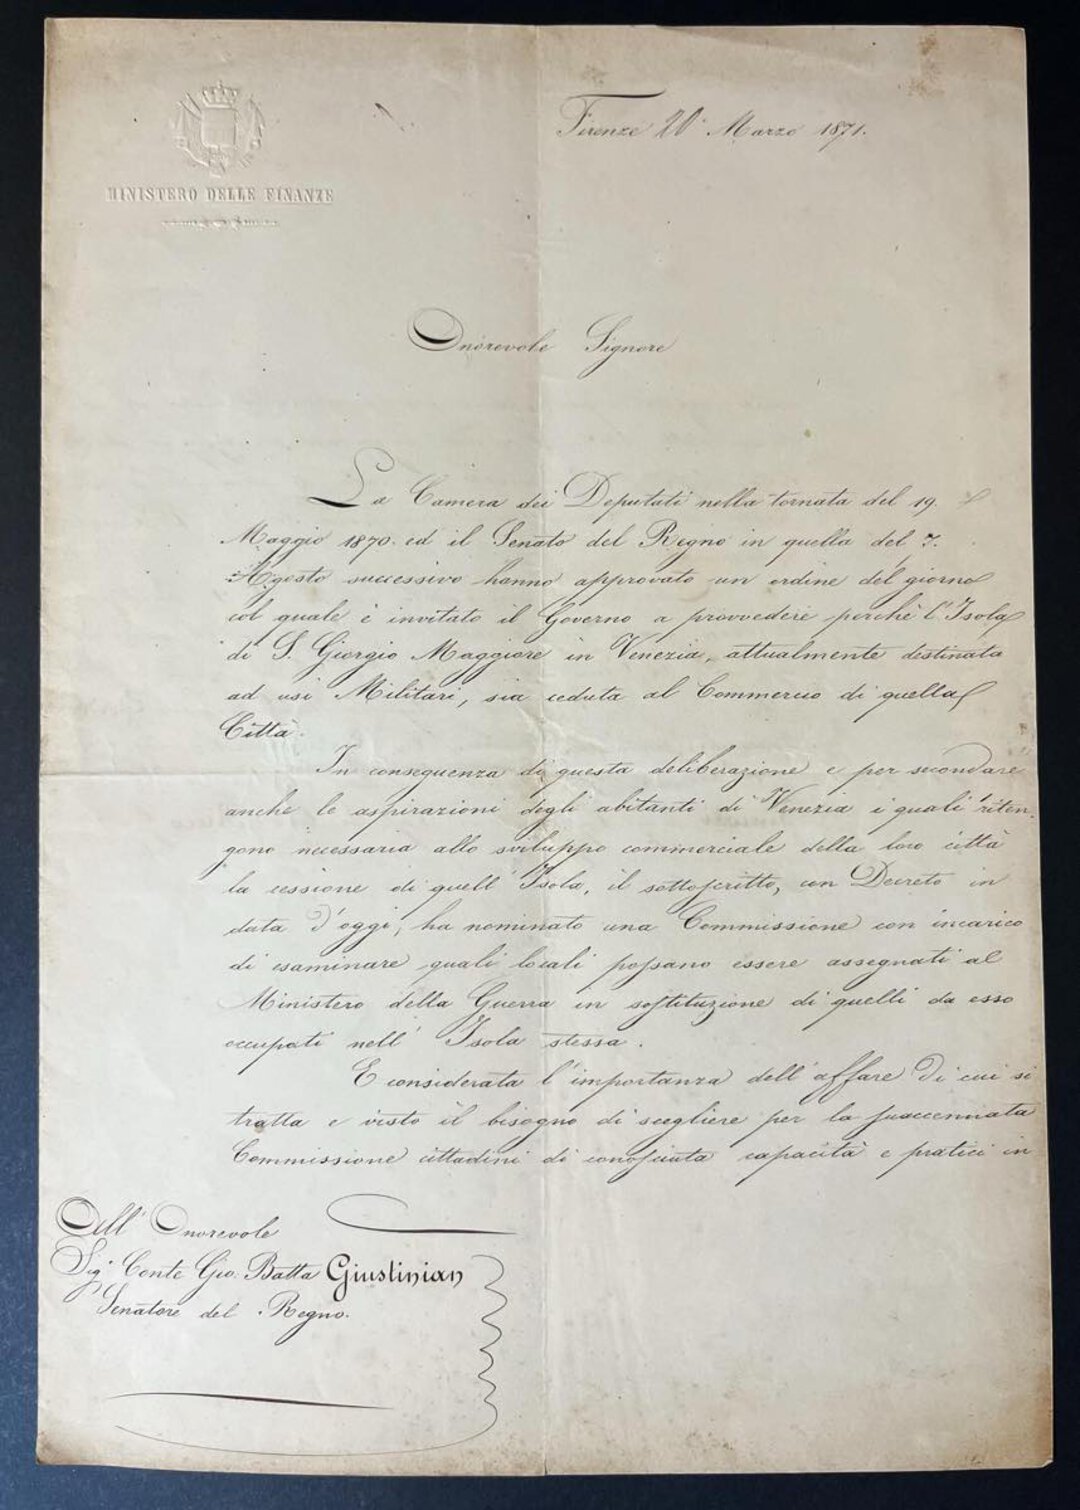 MINISTERO DELLE FINANZE
Firenze 20 Marzo 1871.
Onorevole Signore
La Camera dei Deputati nella tornata del 19.
Maggio 1870. ed il Senato del Regno in quella del 7.
Agosto successivo hanno approvato un ordine del giorno
col quale è invitato il Governo a provvedere perchè l'Isola
di S. Giorgio Maggiore in Venezia, attualmente destinata
ad usi Militari, sia ceduta al Commercio di quella
Città.
In conseguenza di questa deliberazione e per secondare
anche le aspirazioni degli abitanti di Venezia i quali riten-
gono necessaria allo sviluppo commerciale della loro città
la cessione di quell'Isola, il sottoscritto, con Decreto in
data d'oggi, ha nominato una Commissione con incarico
di esaminare quali locali possano essere assegnati al
Ministero della Guerra in sostituzione di quelli da esso
occupati nell'Isola stessa.
E considerata l'importanza dell'affare di cui si
tratta e visto il bisogno di scegliere per la suaccennata
Commissione cittadini di conosciuta capacità e pratici in
All'Onorevole
Sigr Conte Gio. Batta Giustinian
Senatore del Regno.